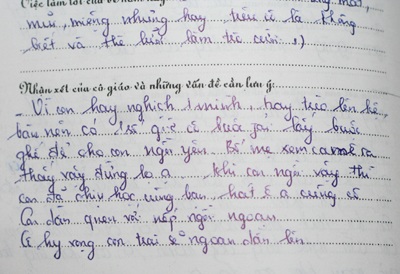 Việc làm tốt của
mũi, miệng nhưng hay trêu cô là không
biết và thế luôn làm trò cười :)
Nhận xét của cô giáo và những vấn đề cần lưu ý:
- Vì con hay nghịch 1 mình, hay trèo lên kệ,
bàn nên có 1 số giờ cô lấy buộc
ghế để cho con ngồi yên. Bố mẹ xem camera
thấy vậy đừng lo ạ. khi con ngồi vậy thì
con đã chịu học cùng bạn, hát ê a cùng cô
Con dần quen với nếp ngồi ngoan
Cô hy vọng con trai sẽ ngoan dần lên